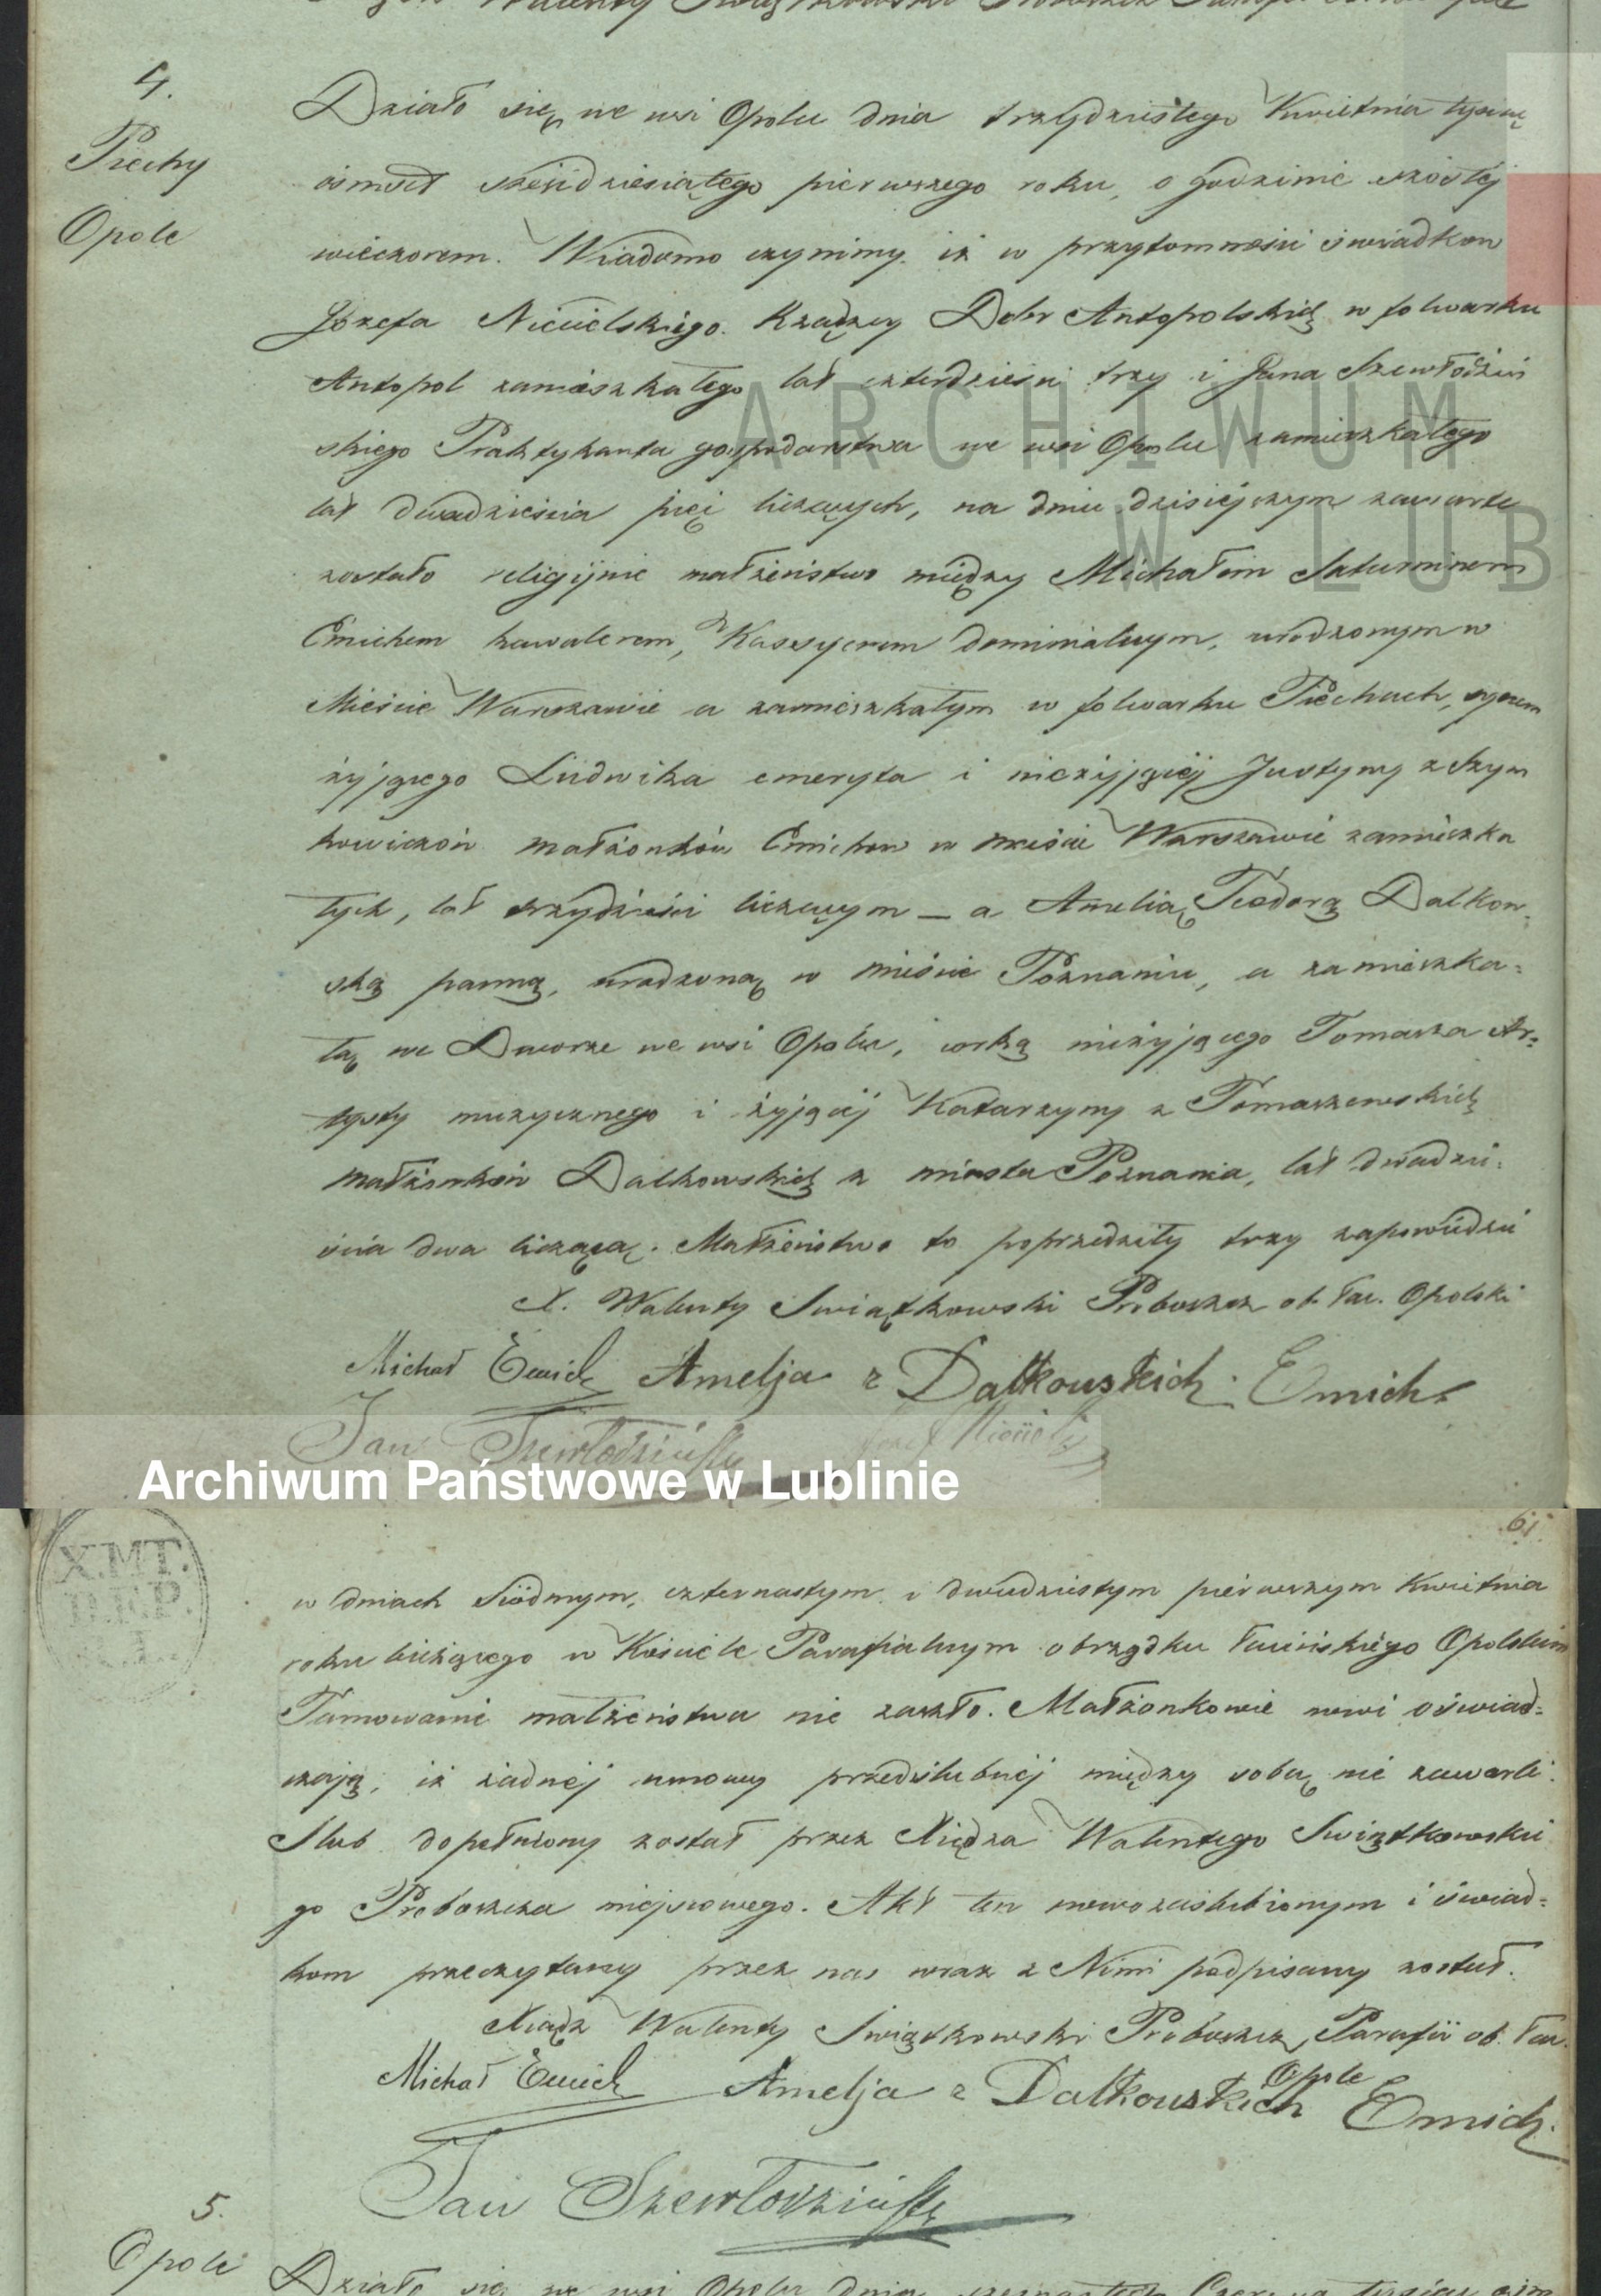 4.
Piechy
Opole
Działo się we wsi Opolu dnia trzydziestego Kwietnia tysiąc
ośmset sześćdziesiątego pierwszego roku, o godzinie szóstej
wieczorem. Wiadomo czynimy iż w przytomności świadków
Józefa Rządzcy Dobr Antopolskich w folwarku
Antopol zamieszkałego lat czterdzieści trzy i Jana Szewłodziń
skiego Praktykanta gospodarstwa we wsi Opolu zamieszkałego
lat dwadzieścia pięć liczących, na dniu dzisiejszym zawarte
zostało religijnie małżeństwo między Michałem Saturninem
Emichem kawalerem, Kassyerem dominialnym, urodzonym w
Mieście Warszawie a zamieszkałym w folwarku Piechach, synem
żyjącego Ludwika emeryta i nieżyjącej Justyny z Szym
kowiczów małżonków Emichow w mieście Warszawie zamieszka
łych, lat trzydzieści liczącym — a Amelią Teodorą Dalkow-
ską panną, urodzoną w mieście Poznaniu, a zamieszka-
łą we Dworze we wsi Opolu, córką nieżyjącego Tomasza Ar-
tysty muzycznego i żyjącej Katarzyny z Tomaszewskich
małżonków Dalkowskich z miasta Poznania, lat dwadzie-
ścia dwa liczącą. Małżeństwo to poprzedziły trzy zapowiedzi
X. Walenty Swiątkowski Proboszcz ob. łac. Opolski
Michał Emich Amelja z Dałkowskich Emich
Jan Szewłodziński Józef
ARCHIWUM
W LUB
Archiwum Państwowe w Lublinie
X.MT.
D.E.P.
61.
w dniach Siódmym, czternastym i dwudziestym pierwszym Kwietnia
roku bieżącego w Kościele Parafialnym obrządku łacińskiego Opolskim
Tamowanie małżeństwa nie zaszło. Małżonkowie nowi oświad-
czają, iż żadnej umowy przedślubnej między sobą nie zawarli.
Slub dopełniony został przez Xiędza Walentego Swiątkowskie
go Proboszcza miejscowego. Akt ten nowozaślubionym i świad-
kom przeczytany przez nas wraz z Nimi podpisany został.
Xiądz Walenty Swiątkowski Proboszcz Parafii ob. łac.
Opole
Michał Emich Amelja z Dałkowskich Emich.
Jan Szewłodziński
5.
Opole
Działo się we wsi Opolu dnia